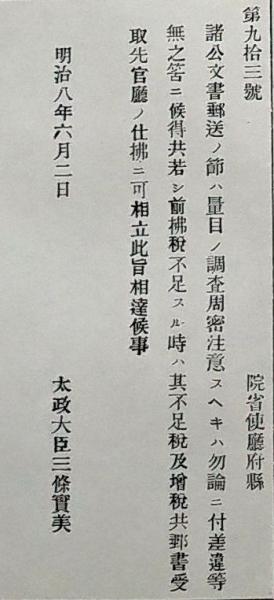 第九拾三號
院省使廳府縣
諸公文書郵送ノ節ハ量目ノ調査周密注意スヘキハ勿論ニ付差違等
無之筈ニ候得共若シ前拂稅不足スル時ハ其不足稅及增稅共郵書受
取先官廳ノ仕拂ニ可相立此旨相達候事
明治八年六月二日
太政大臣三條實美